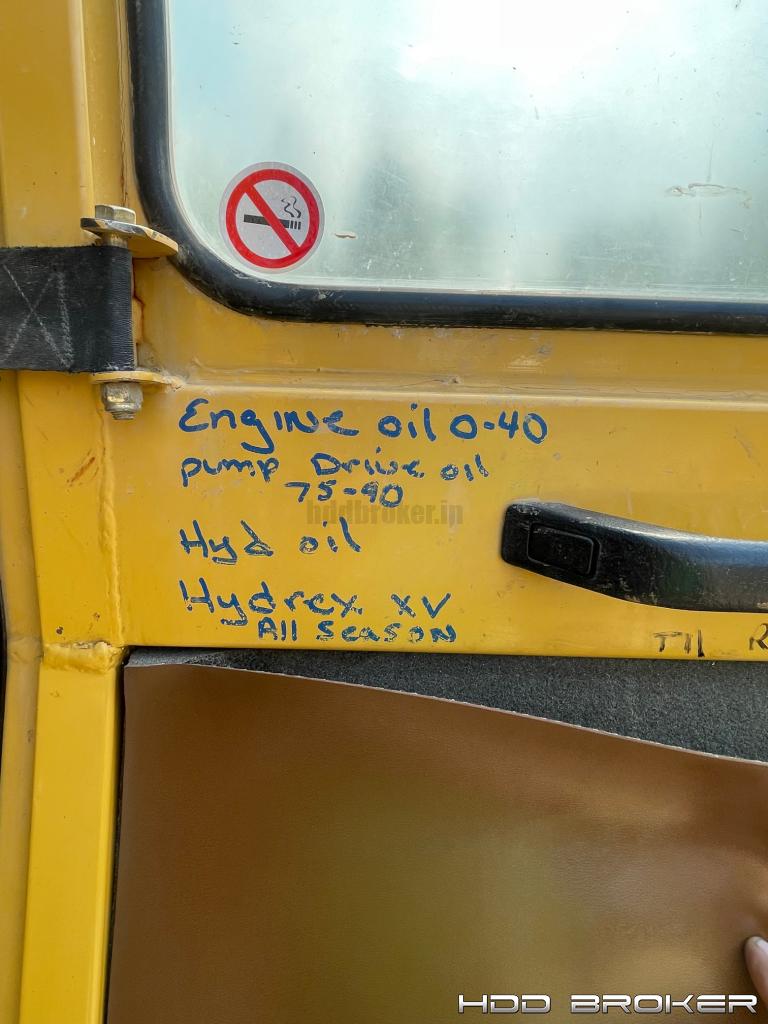 Engine oil 0-40
pump Drive oil
75-90
hddbroker.ip
Hyd oil
Hydrex XV
All Season
TIL R
HDD BROKER